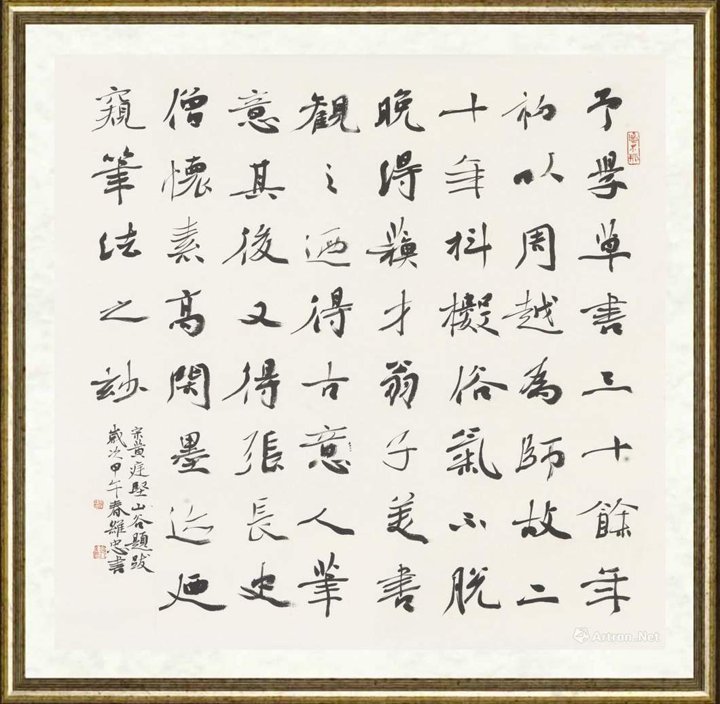 予學草書三十餘年
初以周越為師故二
十年抖擻俗氣不脫
晚得蘇才翁子美書
觀之迺得古意人筆
意其後又得張長史
僧懷素高閑墨迹廼
窺筆法之妙
宋黃庭堅山谷題跋
歲次甲午春忠書
Artron.Net